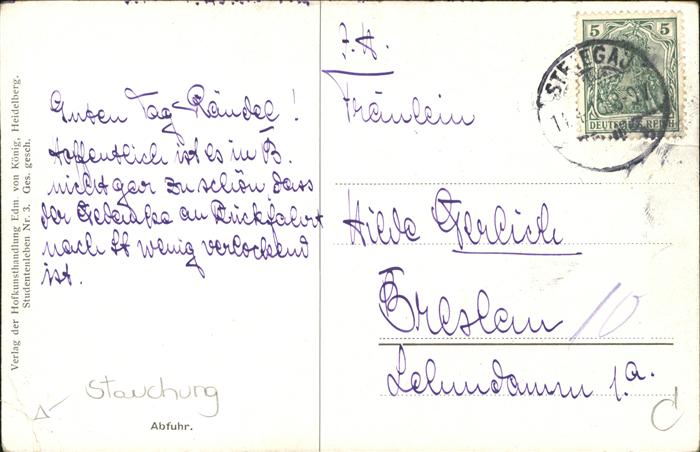 Verlag der Hofkunsthandlung Edm. von König, Heidelberg.
Studentenleben Nr. 3. Ges. gesch.
Guten Tag Rändel!
Hoffentlich ist es in B.
nicht gar zu schön dass
der Gedanke an Rückfahrt
nach St wenig verlockend
ist.
Stauchung
Abfuhr.
Fräulein
Hilde Gerlich
Breslau 10
Lehmdamm 1a.
5 5
DEUTSCHES REICH
STRIEGAU
d